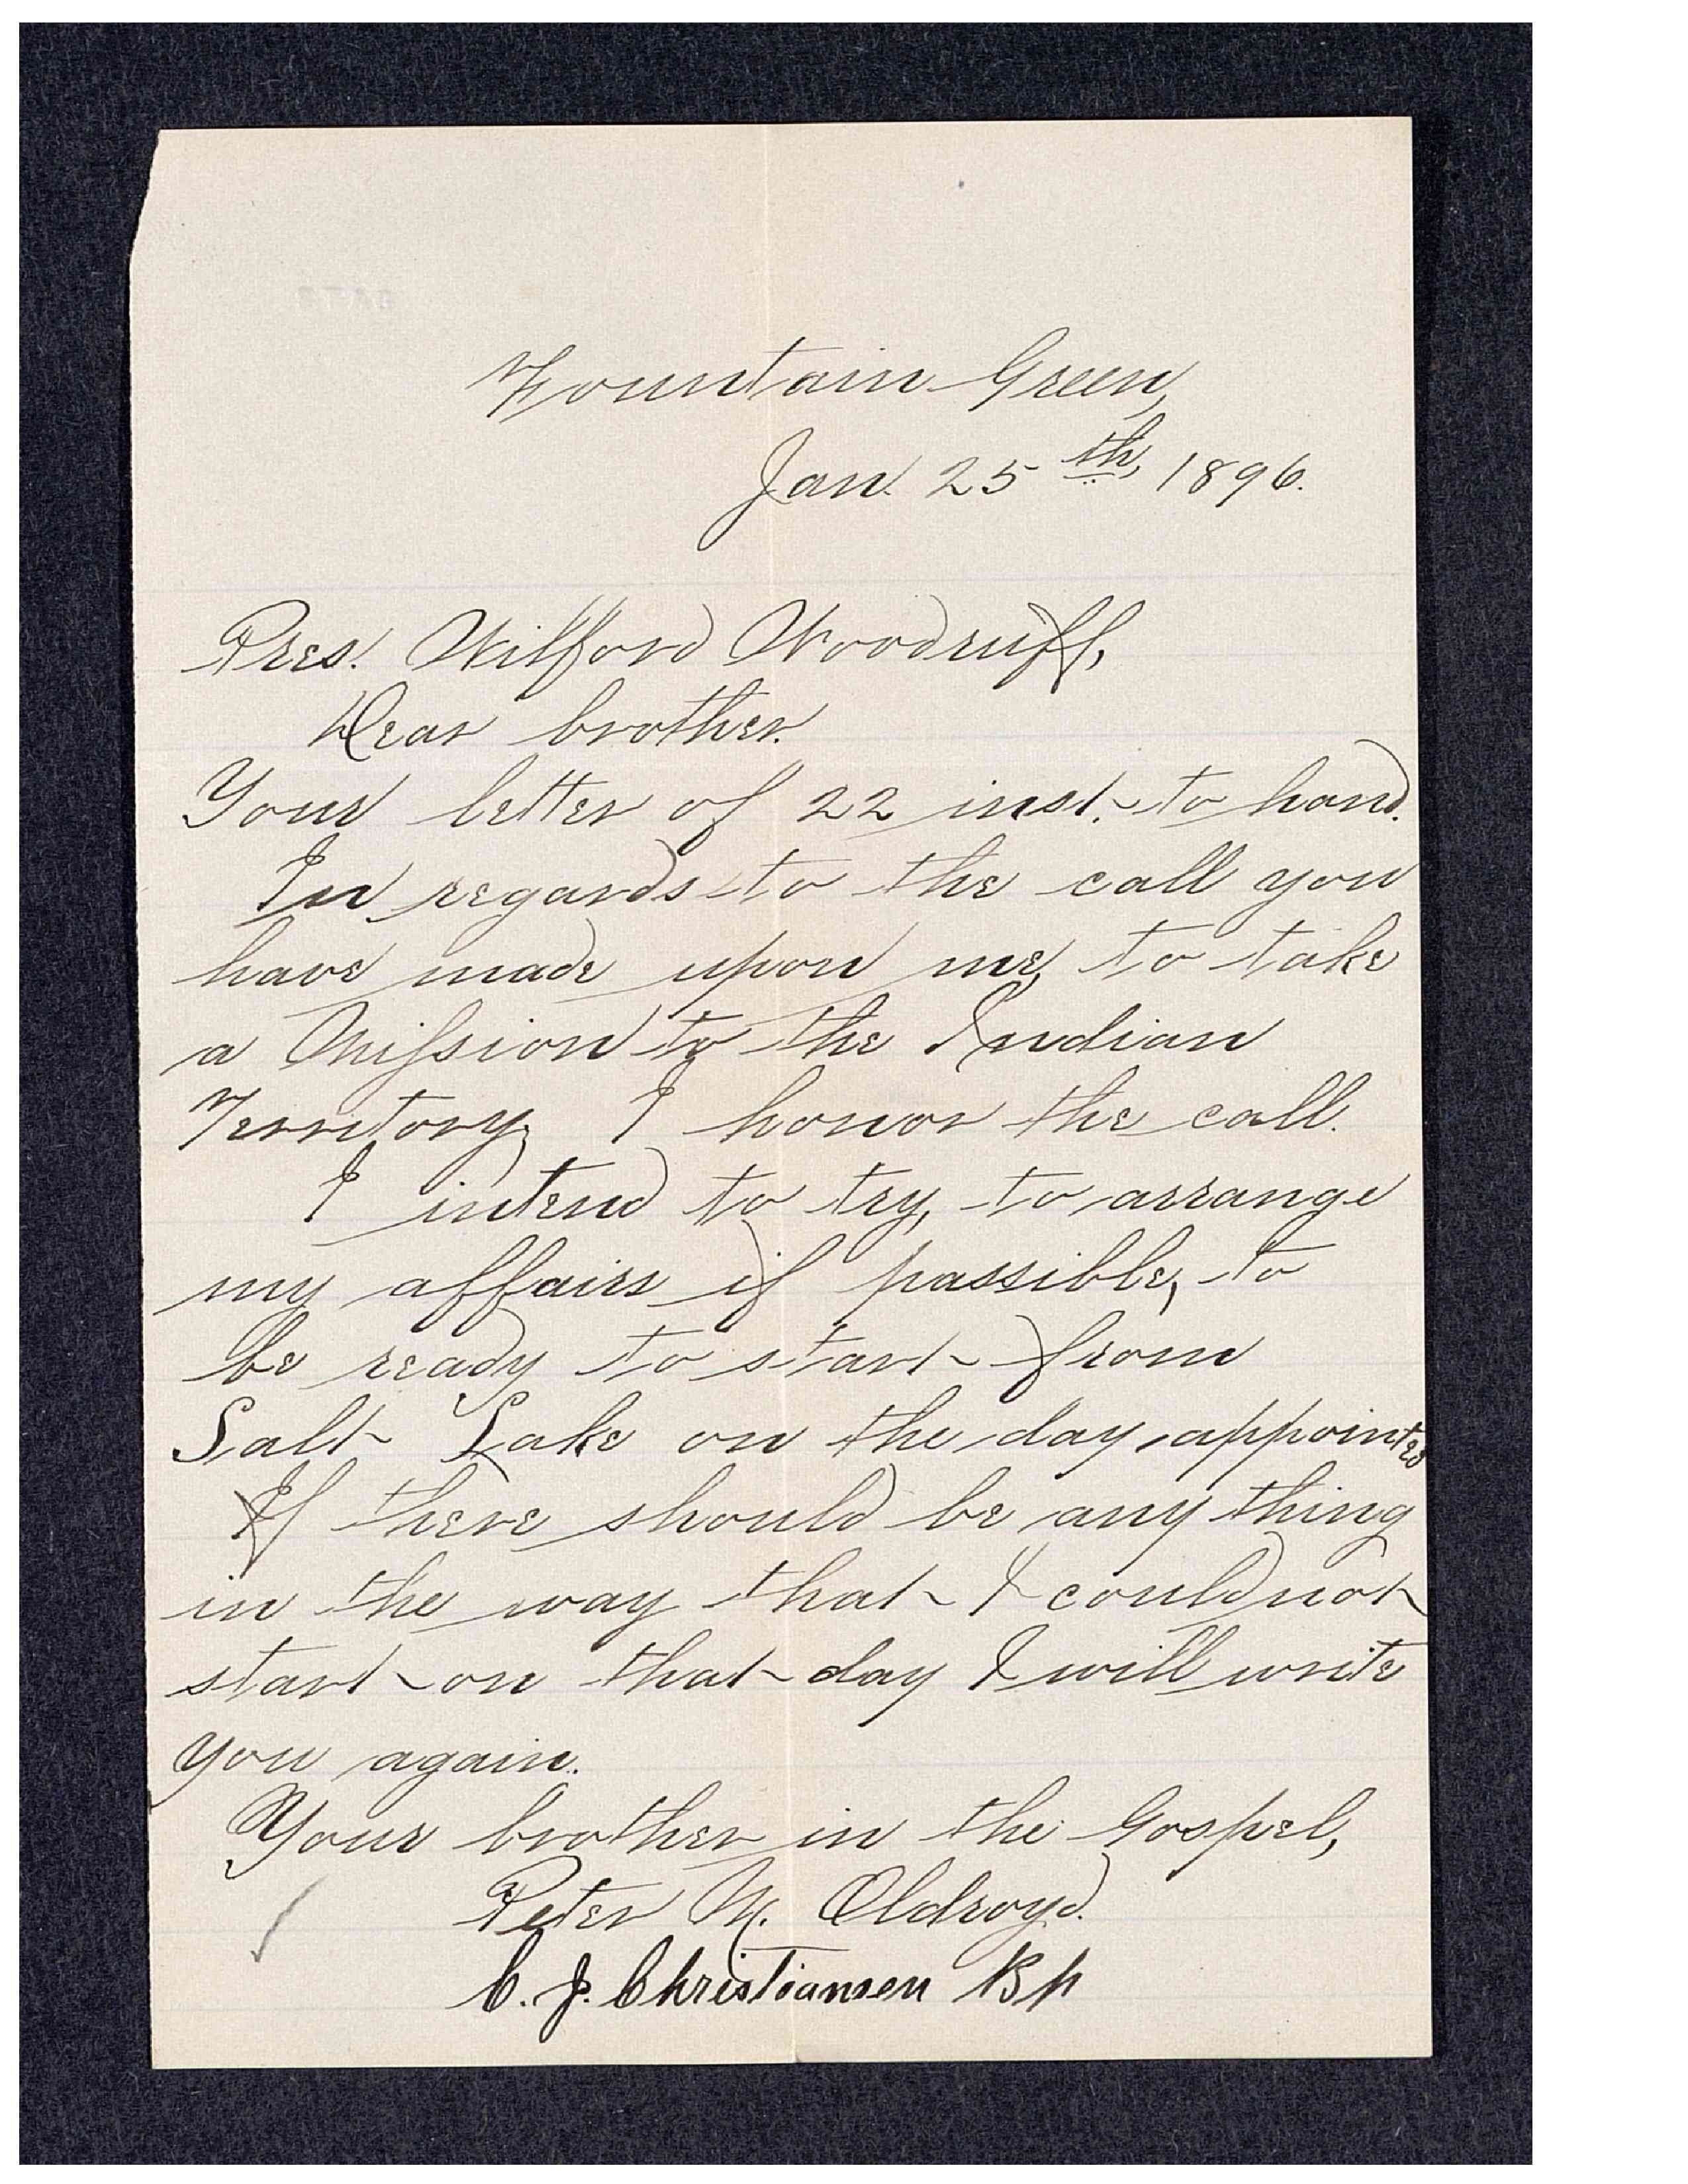 Fountain Green,
Jan. 25th, 1896.
Pres. Wilford Woodruff,
Dear brother.
Your letter of 22 inst. to hand.
In regards to the call you
have made upon me, to take
a Mission to the Indian
Territory, I honor the call.
I intend to try, to arrange
my affairs if passible, to
be ready to start from
Salt Lake on the day appointed
If there should be any thing
in the way that I could not
start on that day I will write
you again.
Your brother in the Gospel,
Peter M. Oldroyd.
C. J. Christiansen Bp